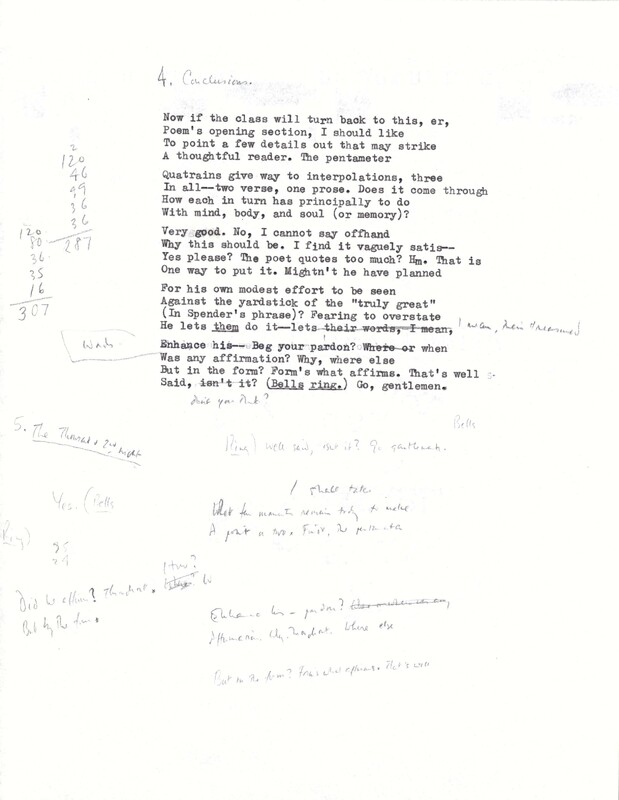 4. Conclusions.
Now if the class will turn back to this, er,
Poem's opening section, I should like
To point a few details out that may strike
A thoughtful reader. The pentameter
Quatrains give way to interpolations, three
In all--two verse, one prose. Does it come through
How each in turn has principally to do
With mind, body, and soul (or memory)?
Very good. No, I cannot say offhand
Why this should be. I find it vaguely satis--
Yes please? The poet quotes too much? Hm. That is
One way to put it. Mightn't he have planned
For his own modest effort to be seen
Against the yardstick of the "truly great"
(In Spender's phrase)? Fearing to overstate
He lets them do it--lets their words, I mean, I mean, their treasured
Words
Enhance his-- Beg your pardon? Where or when
Was any affirmation? Why, where else
But in the form? Form's what affirms. That's well
Said, isn't it? (Bells ring.) Go, gentlemen.
don't you think?
2
120
46
99
36
36
287
120
80
36
35
16
307
5. The Thousand & 2nd Night
Bells
Ring) well said, isn't it? Go gentlemen.
Yes. (Bells
Ring)
I shall take
What few moments remain today to make
A point or two. First, the pentameter
Did he affirm? Throughout.
But by the form.
Enhance his - pardon?
Affirmation Throughout. Where else
But in the form? Form's what affirms. That's well